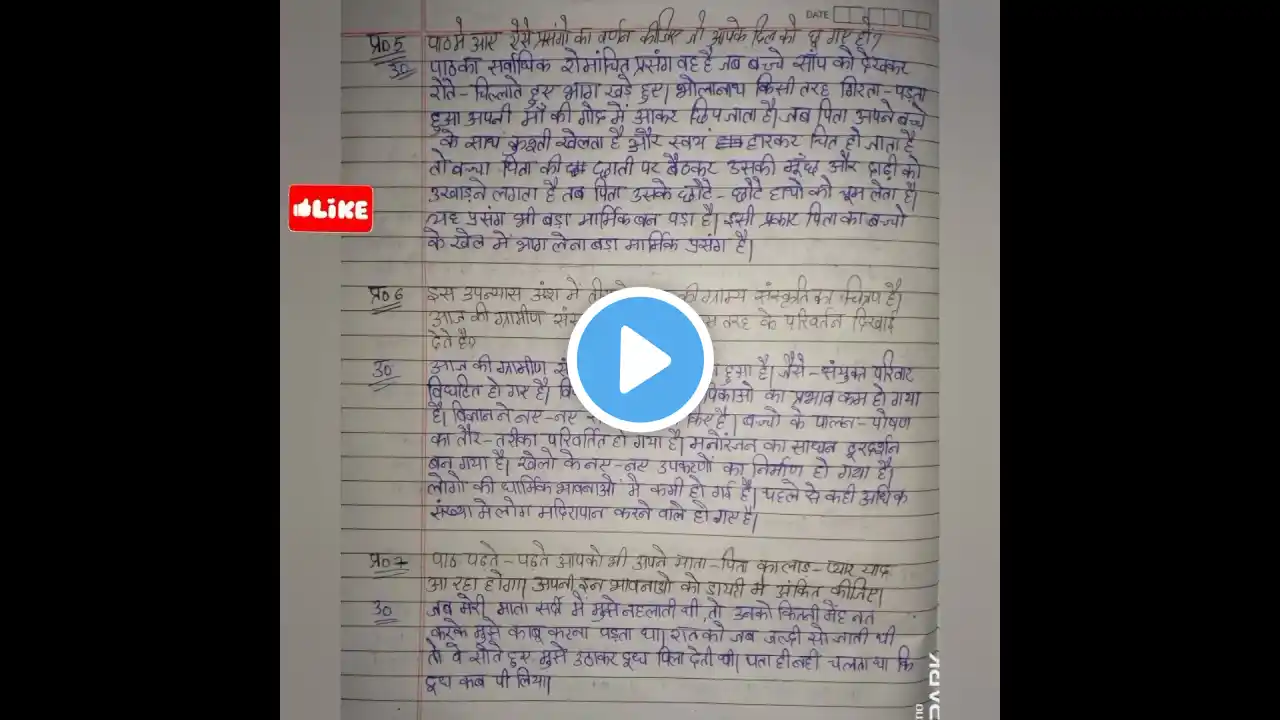 DATE
प्र० 5 पाठ मे आए ऐसे प्रसंगो का वर्णन कीजिए जो आपके दिल को छू गए हो?
उ० पाठ का सर्वाधिक रोमांचित प्रसंग वह है जब बच्चे साँप को देखकर
रोते-चिल्लाते हुए भाग खड़े हुए। भोलानाथ किसी तरह गिरता-पड़ता
हुआ अपनी माँ की गोद में आकर छिप जाता है। जब पिता अपने बच्चे
के साथ कुश्ती खेलता है और स्वयं हारकर चित हो जाता है
तो बच्चा पिता की छाती पर बैठकर उसकी मूँछ और दाढ़ी को
LIKE
उखाड़ने लगता है तब पिता उसके छोटे-छोटे हाथो को चूम लेता है।
यह प्रसंग भी बड़ा मार्मिक बन पड़ा है। इसी प्रकार पिता का बच्चो
के खेल में भाग लेना बड़ा मार्मिक प्रसंग है।
प्र० 6 इस उपन्यास अंश में की ग्राम्य संस्कृति का चित्रण है।
आज की ग्रामीण तरह के परिवर्तन दिखाई
देते है?
उ० आज की ग्रामीण हुआ है। जैसे-संयुक्त परिवार
विघटित हो गए है। का प्रभाव कम हो गया
है। विज्ञान ने नए-नए किए है। बच्चो के पालन-पोषण
का तौर-तरीका परिवर्तित हो गया है। मनोरंजन का साधन दूरदर्शन
बन गया है। खेलो के नए-नए उपकरणों का निर्माण हो गया है।
लोगो की धार्मिक भावनाओ मे कमी हो गई है। पहले से कही अधिक
संख्या मे लोग मदिरापान करने वाले हो गए है।
प्र० 7 पाठ पढ़ते-पढ़ते आपको भी अपने माता-पिता का लाड-प्यार याद
आ रहा होगा। अपनी इन भावनाओ को डायरी मे अंकित कीजिए।
उ० जब मेरी माता सर्दी में मुझे नहलाती थी, तो उनको कितनी मेहनत
करके मुझे काबू करना पड़ता था। रात को जब जल्दी सो जाती थी
तो वे सोते हुए मुझे उठाकर दूध पिला देती थी। पता ही नही चलता था कि
दूध कब पी लिया।